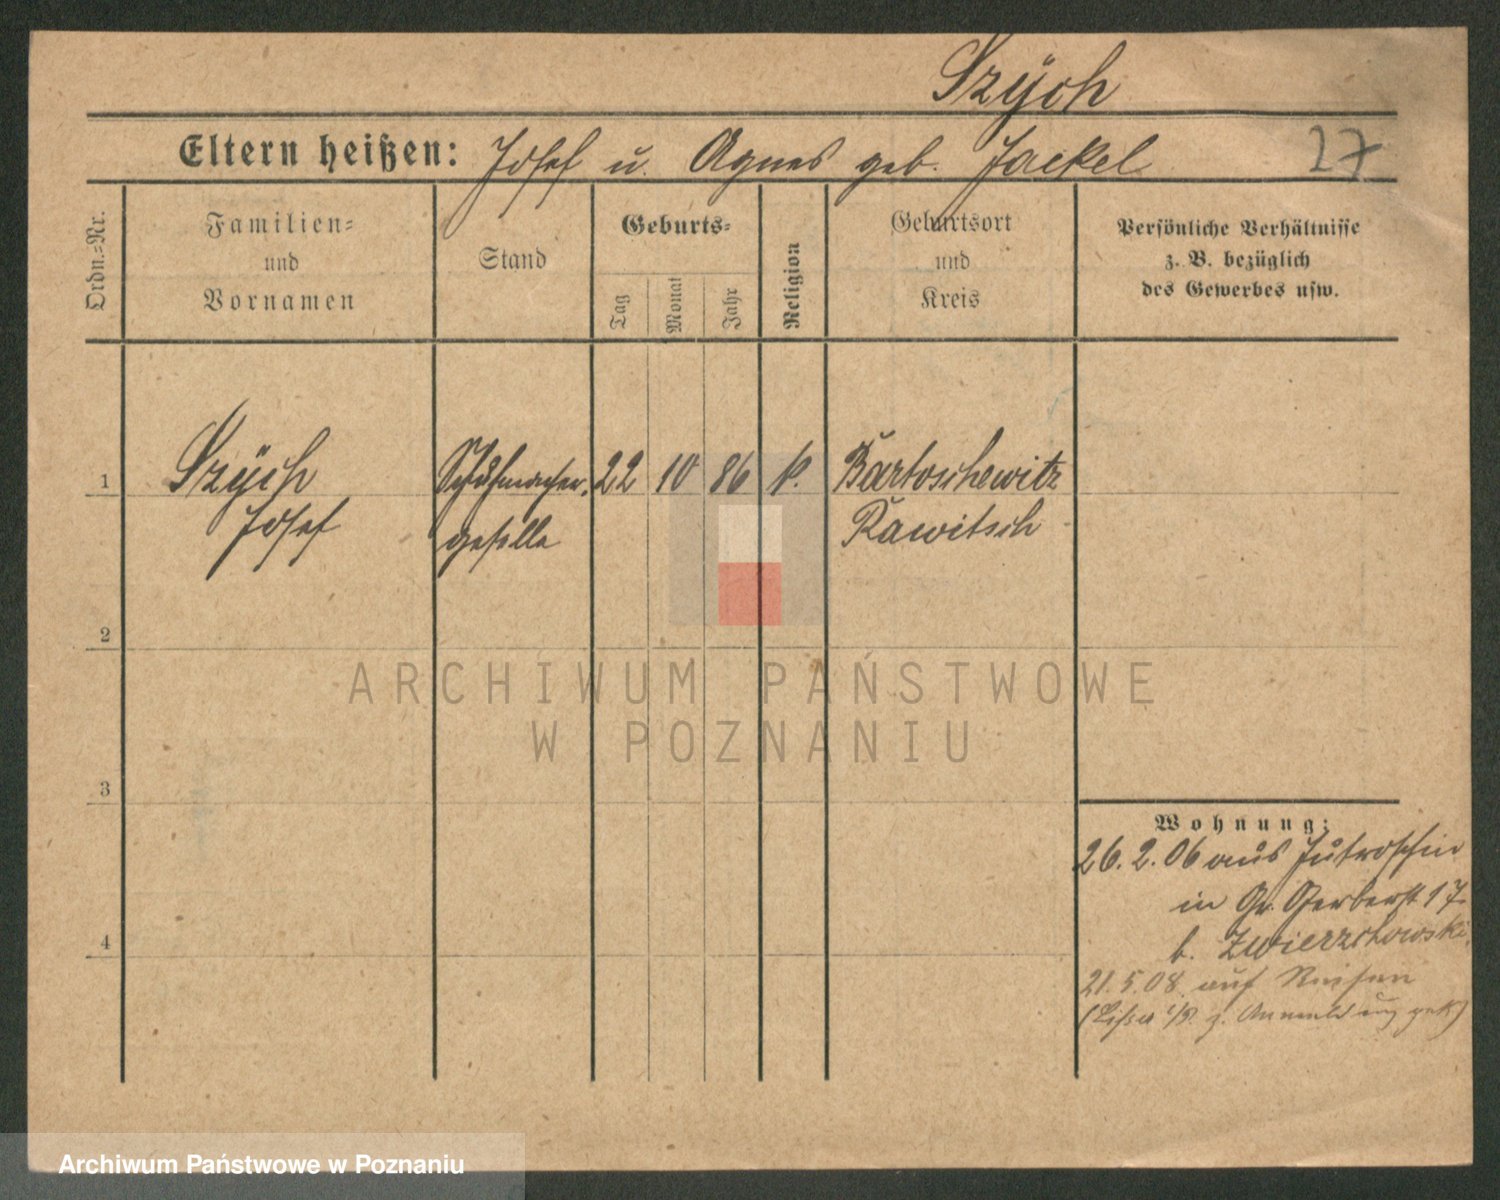 Szÿch
Eltern heißen: Josef u. Agnes geb. Jackel
27
Ordn.=Nr.
Familien=
und
Vornamen
Stand
Geburts=
Tag
Monat
Jahr
Religion
Geburtsort
und
Kreis
Persönliche Verhältnisse
z. B. bezüglich
des Gewerbes usw.
1
Szÿch
Josef
Schuhmacher-
geselle
22
10
86
k.
Bartoschewitz
Rawitsch
2
3
4
Wohnung:
26. 2. 06 aus Jutroschin
in Gr. Gerberst 17
b. Zwierzchowski
21. 5. 08 auf Reisen
(Lissa i/P. z. Anmeldung
ARCHIWUM PAŃSTWOWE
W POZNANIU
Archiwum Państwowe w Poznaniu